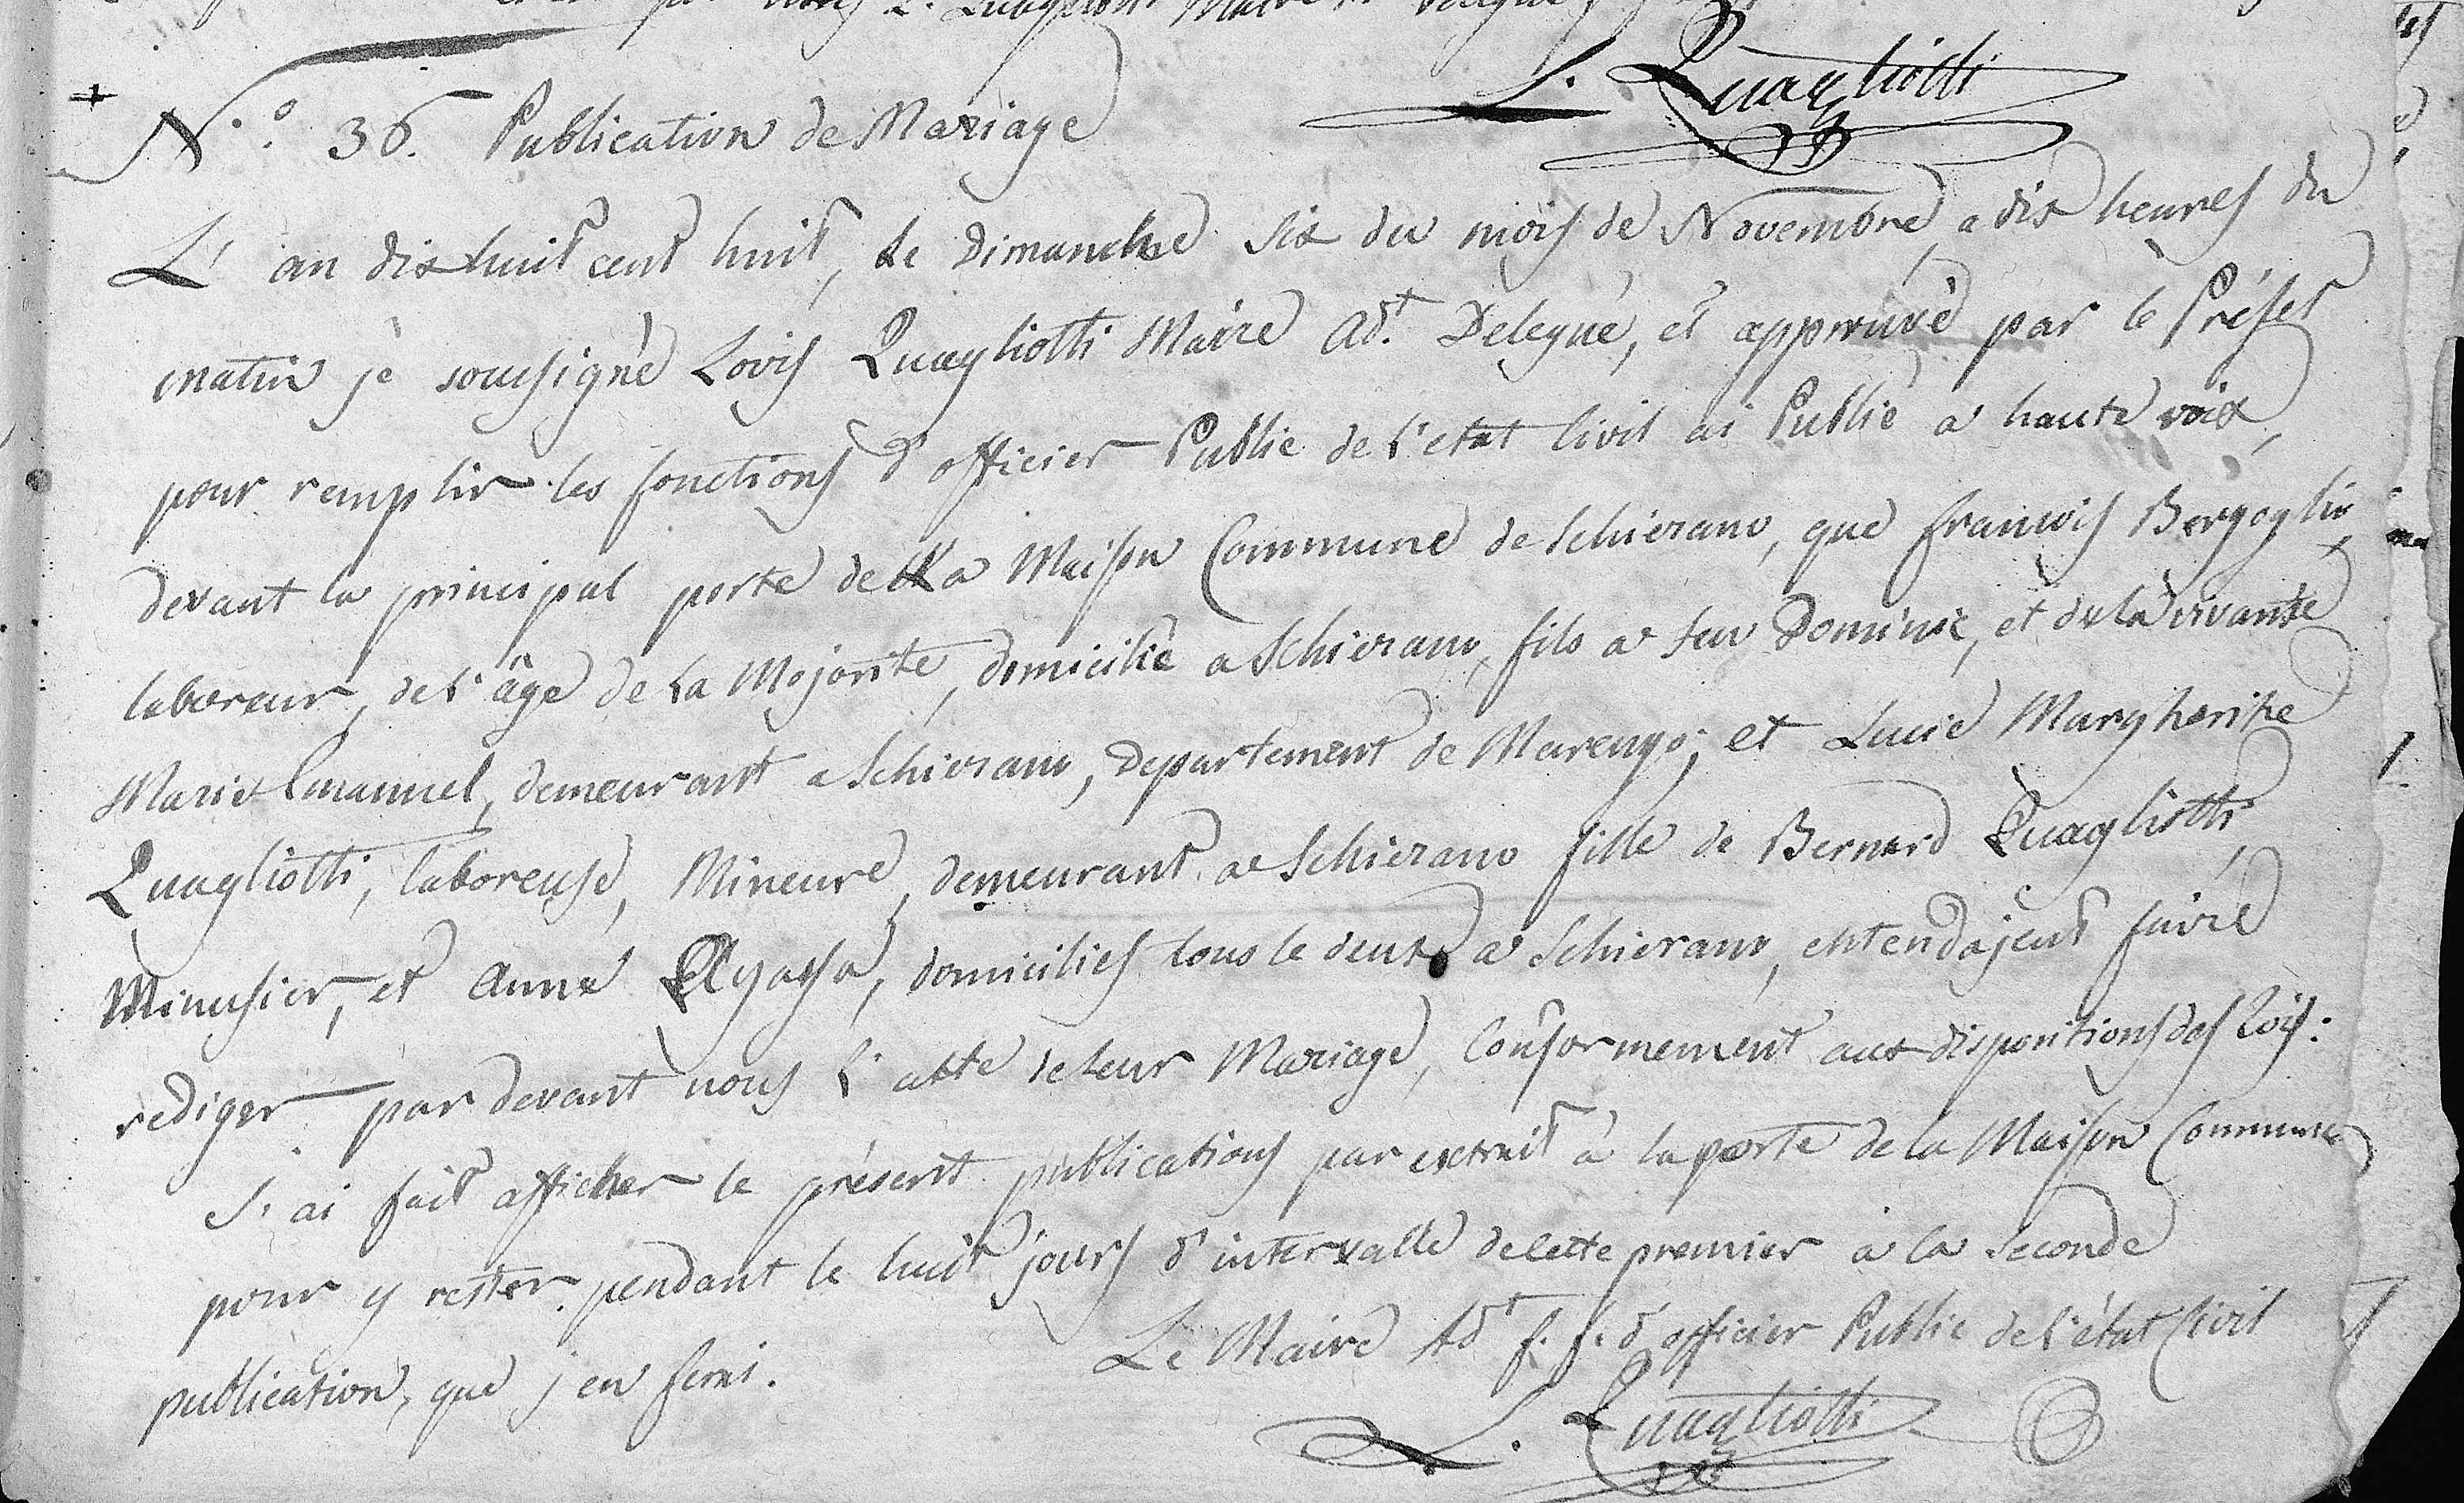 L. Quagliotti
N.o 36. Publication de Mariage
L'an dix huit cent huit, le Dimanche six du mois de Novembre, a dix heures du
matin jè sousigné Lovis Quagliotti Maire Adt. Delegué, et approuvé par le Préfet
pour remplir les fonctions d'officier Public de l'etat Civil ai Publié a haute voix,
devant la principal porte de la Maison Commune de Schierano, que Francois Bergoglio,
laboreur, de l'âge de la Majorité, domicilié a Schierano, fils a feu Dominic, et de la vivante
Marie Emanuel, demeurant a Schierano, Departement de Marengo; et Lucie Margherite
Quagliotti, laboreuse, Mineure, demeurant a Schierano fille de Bernard Quagliotti,
Minusier, et Anne domiciliés tous le deux a Schierano, entendajent faire
rediger par devant nous l'atte de leur Mariage, Conformement aux dispositions des Lois:
J'ai fait afficher le présent publications par extrait à la porte de la Maison Commune
pour y rester pendant le huit jours d'intervalle de cette premier à la seconde
publication, que j'en ferai.
Le Maire Adt f. f. d'officier Public de l'état Civil
L. Quagliotti